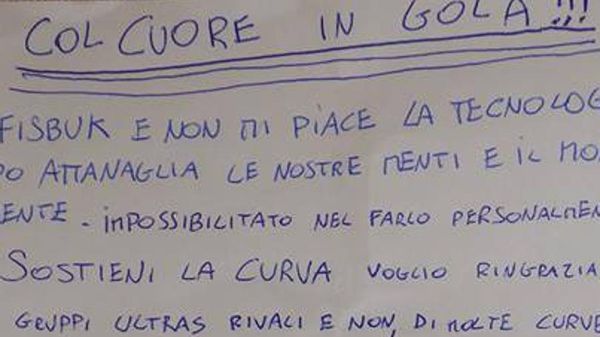 COL CUORE IN GOLA!!!
FISBUK E NON MI PIACE LA TECNOLOG
PO ATTANAGLIA LE NOSTRE MENTI E IL MO
ENTE - IMPOSSIBILITATO NEL FARLO PERSONALMEN
SOSTIENI LA CURVA VOGLIO RINGRAZIA
GRUPPI ULTRAS RIVALI E NON, DI MOLTE CURVE